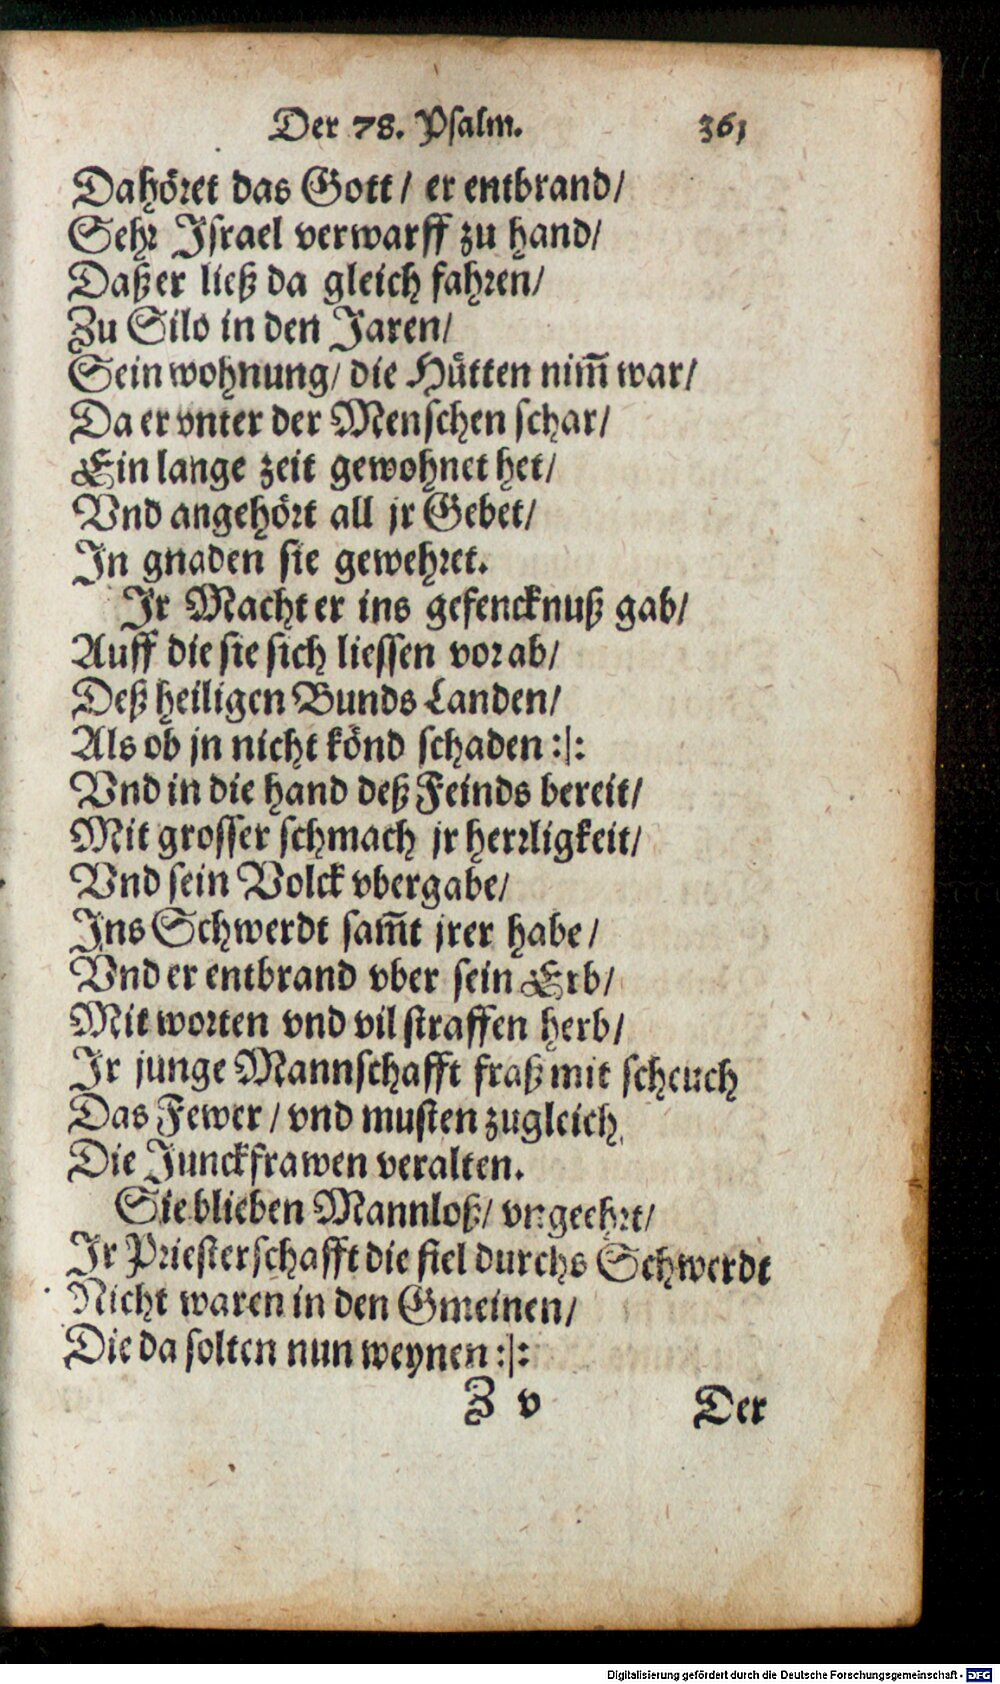 Der 78. Psalm. 361
Da höret das Gott/ er entbrand/
Sehr Israel verwarff zu hand/
Daß er ließ da gleich fahren/
Zu Silo in den Jaren/
Sein wohnung/ die Hütten nim̃ war/
Da er vnter der Menschen schar/
Ein lange zeit gewohnet het/
Vnd angehört all jr Gebet/
In gnaden sie gewehret.
Ir Macht er ins gefencknuß gab/
Auff die sie sich liessen vorab/
Deß heiligen Bunds Landen/
Als ob jn nicht könd schaden :|:
Vnd in die hand deß Feinds bereit/
Mit grosser schmach jr herrligkeit/
Vnd sein Volck vbergabe/
Ins Schwerdt sam̃t jrer habe/
Vnd er entbrand vber sein Erb/
Mit worten vnd vil straffen herb/
Ir junge Mannschafft fraß mit scheuch
Das Fewer/ vnd musten zugleich
Die Junckfrawen veralten.
Sie blieben Mannloß/ vngeehrt/
Ir Priesterschafft die fiel durchs Schwerdt
Nicht waren in den Gmeinen/
Die da solten nun weynen :|:
Z v Der
Digitalisierung gefördert durch die Deutsche Forschungsgemeinschaft - DFG